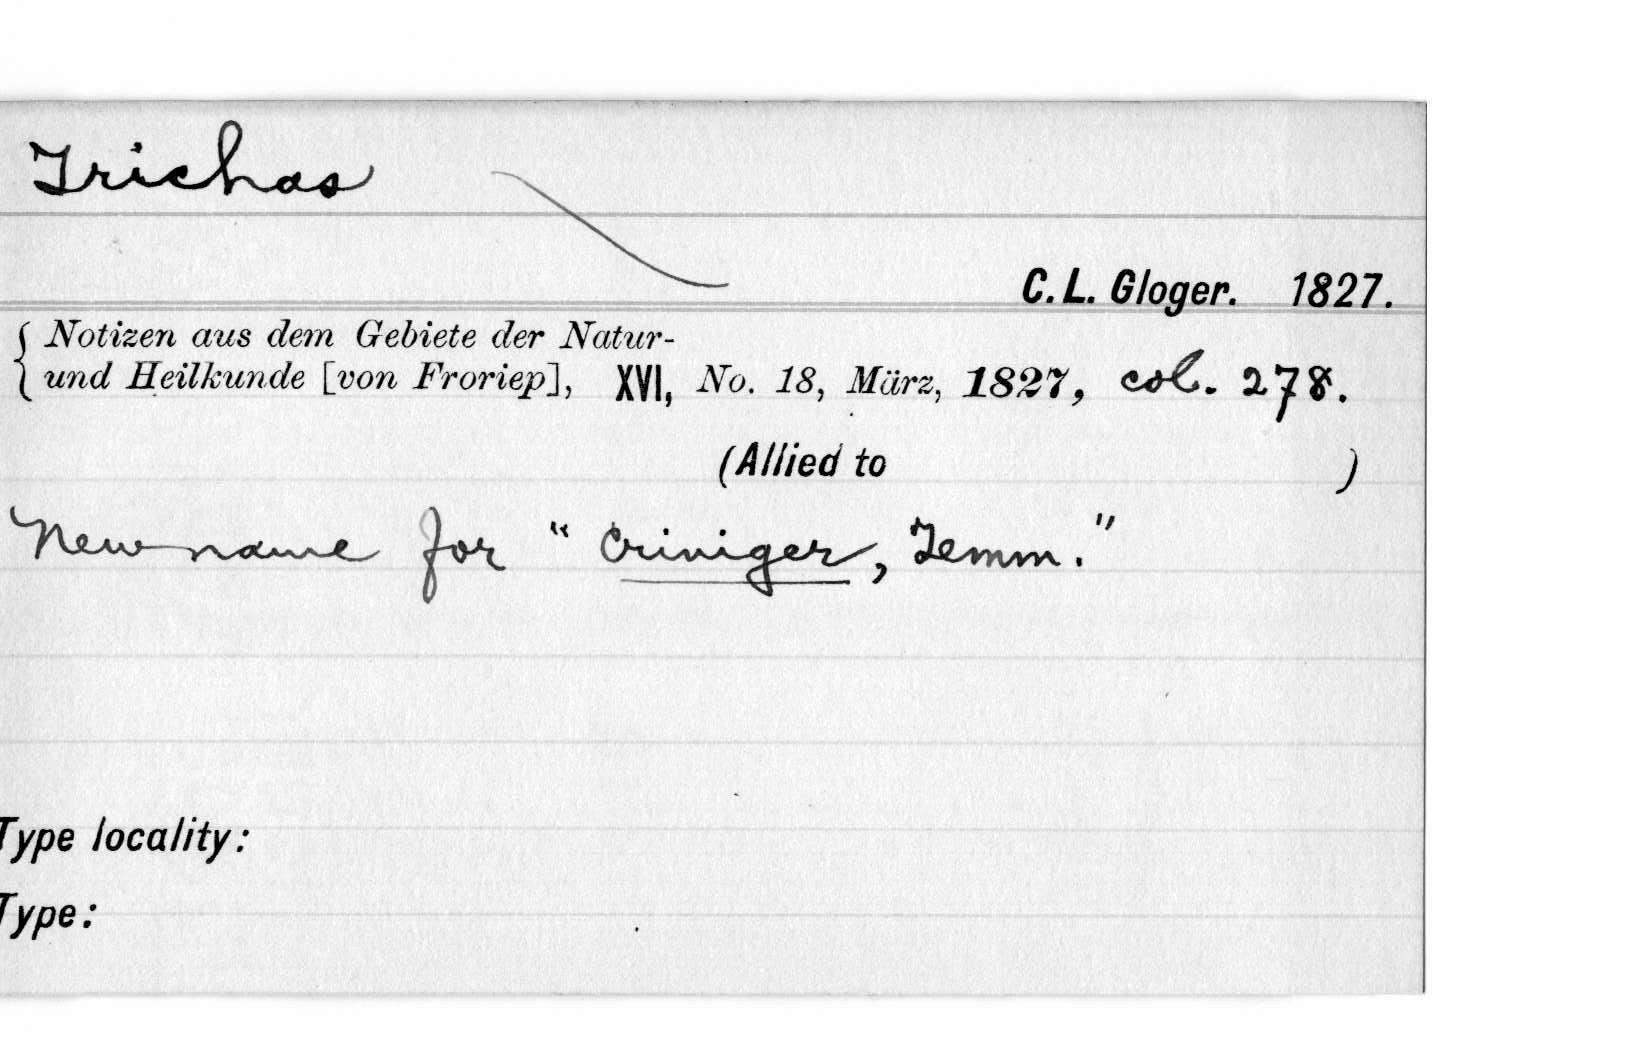 Trichas
C. L. Gloger. 1827.
Notizen aus dem Gebiete der Natur-
und Heilkunde [von Froriep], XVI, No. 18, März, 1827, col. 278.
(Allied to )
New name for "Criniger, Temm."
Type locality:
Type: